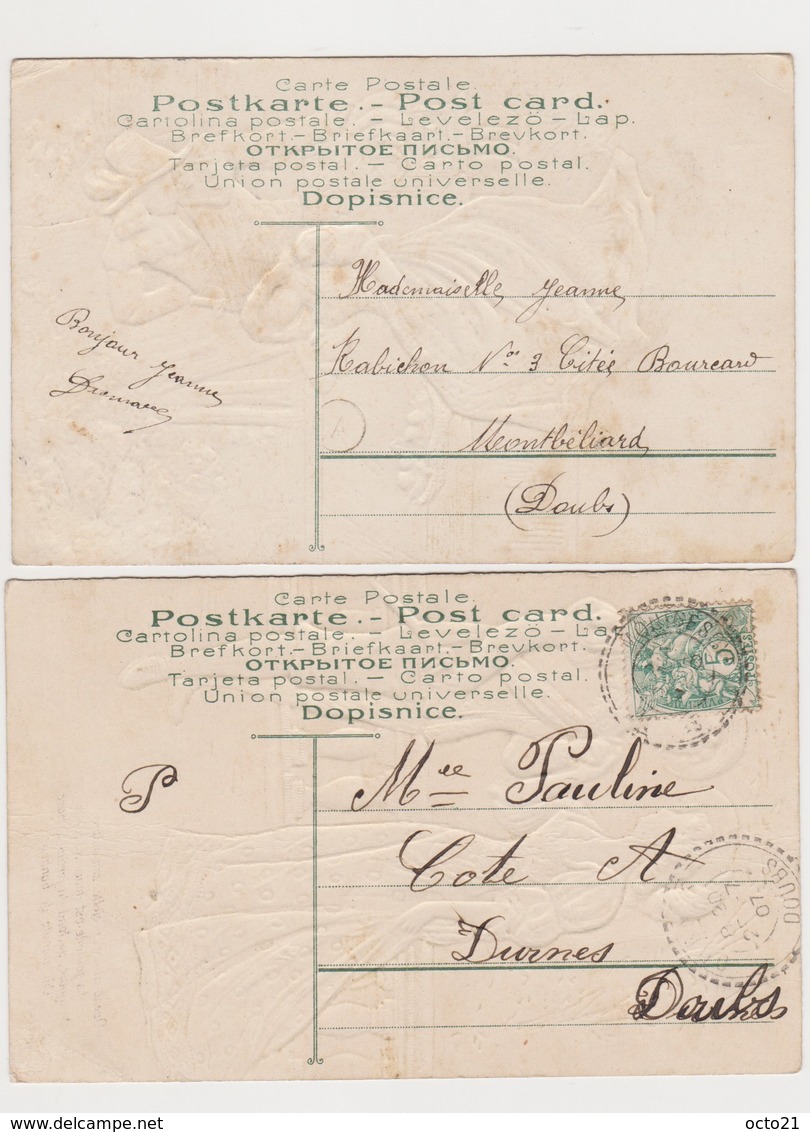 Carte Postale.
Postkarte. - Post card.
Cartolina postale. - Levelező - Lap.
Brefkort. - Briefkaart. - Brevkort.
ОТКРЫТОЕ ПИСЬМО.
Tarjeta postal. - Carto postal.
Union postale universelle.
Dopisnice.
Mademaiselle Jeanne
Rabichon Nos 3 Citée Bourcard
Montbéliard
(Doubs)
Bonjour Jeanne
A
Carte Postale.
Postkarte. - Post card.
Cartolina postale. - Levelező - La
Brefkort. - Briefkaart. - Brevkort.
ОТКРЫТОЕ ПИСЬМО.
Tarjeta postal. - Carto postal.
Union postale universelle.
Dopisnice.
5
P
Mlle Pauline
Cote A
Durnes
Doubs
DOUBS
07
delcampe.net
octo21